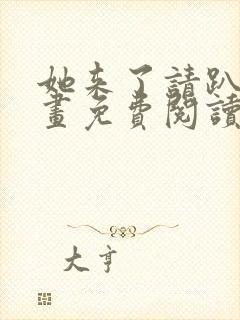 她来了請趴
畫免費閱讀
大亨